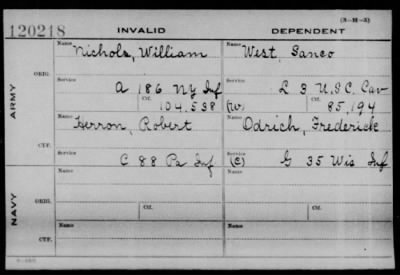 (3-M-3)
120218 INVALID DEPENDENT
Name Name
Nichols, William West, Sanco
ORIG.
Service Service
A 186 NY Inf L 3 U.S.C. Cav
Ctf. Ctf.
104,538 (W) 85,194
ARMY
Name Name
Herron, Robert Odrich, Frederick
CTF.
Service Service
C 88 Pa Inf (C) G 35 Wis Inf
Name Name
ORIG.
Ctf. Ctf.
NAVY
Name Name
CTF.